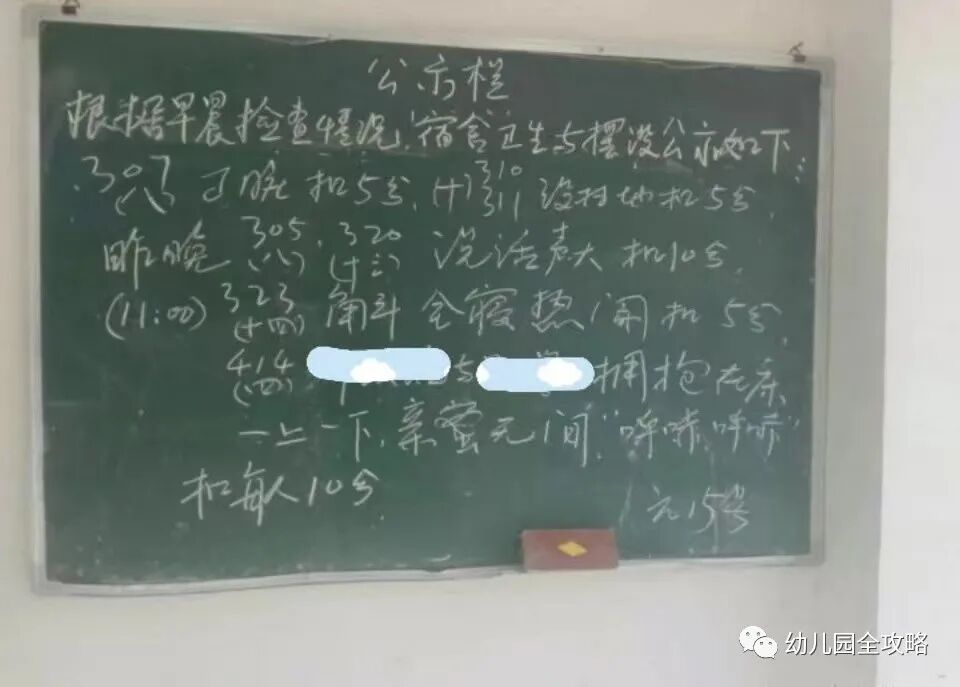 公示栏
根据早晨检查情况,宿舍卫生与摆设公示如下:
307 (八) 了晓扣5分, (十) 310 311 没扫地扣5分,
昨晚 305 (八), 320 (十三) 说话声大 扣10分,
(11:00) 323 (十四) 角斗 全寝热闹扣 5分,
414 (四) 与 拥抱在床
一上一下,亲蜜无间,"呼哧,呼哧"
扣每人10分 元15号
幼儿园全攻略